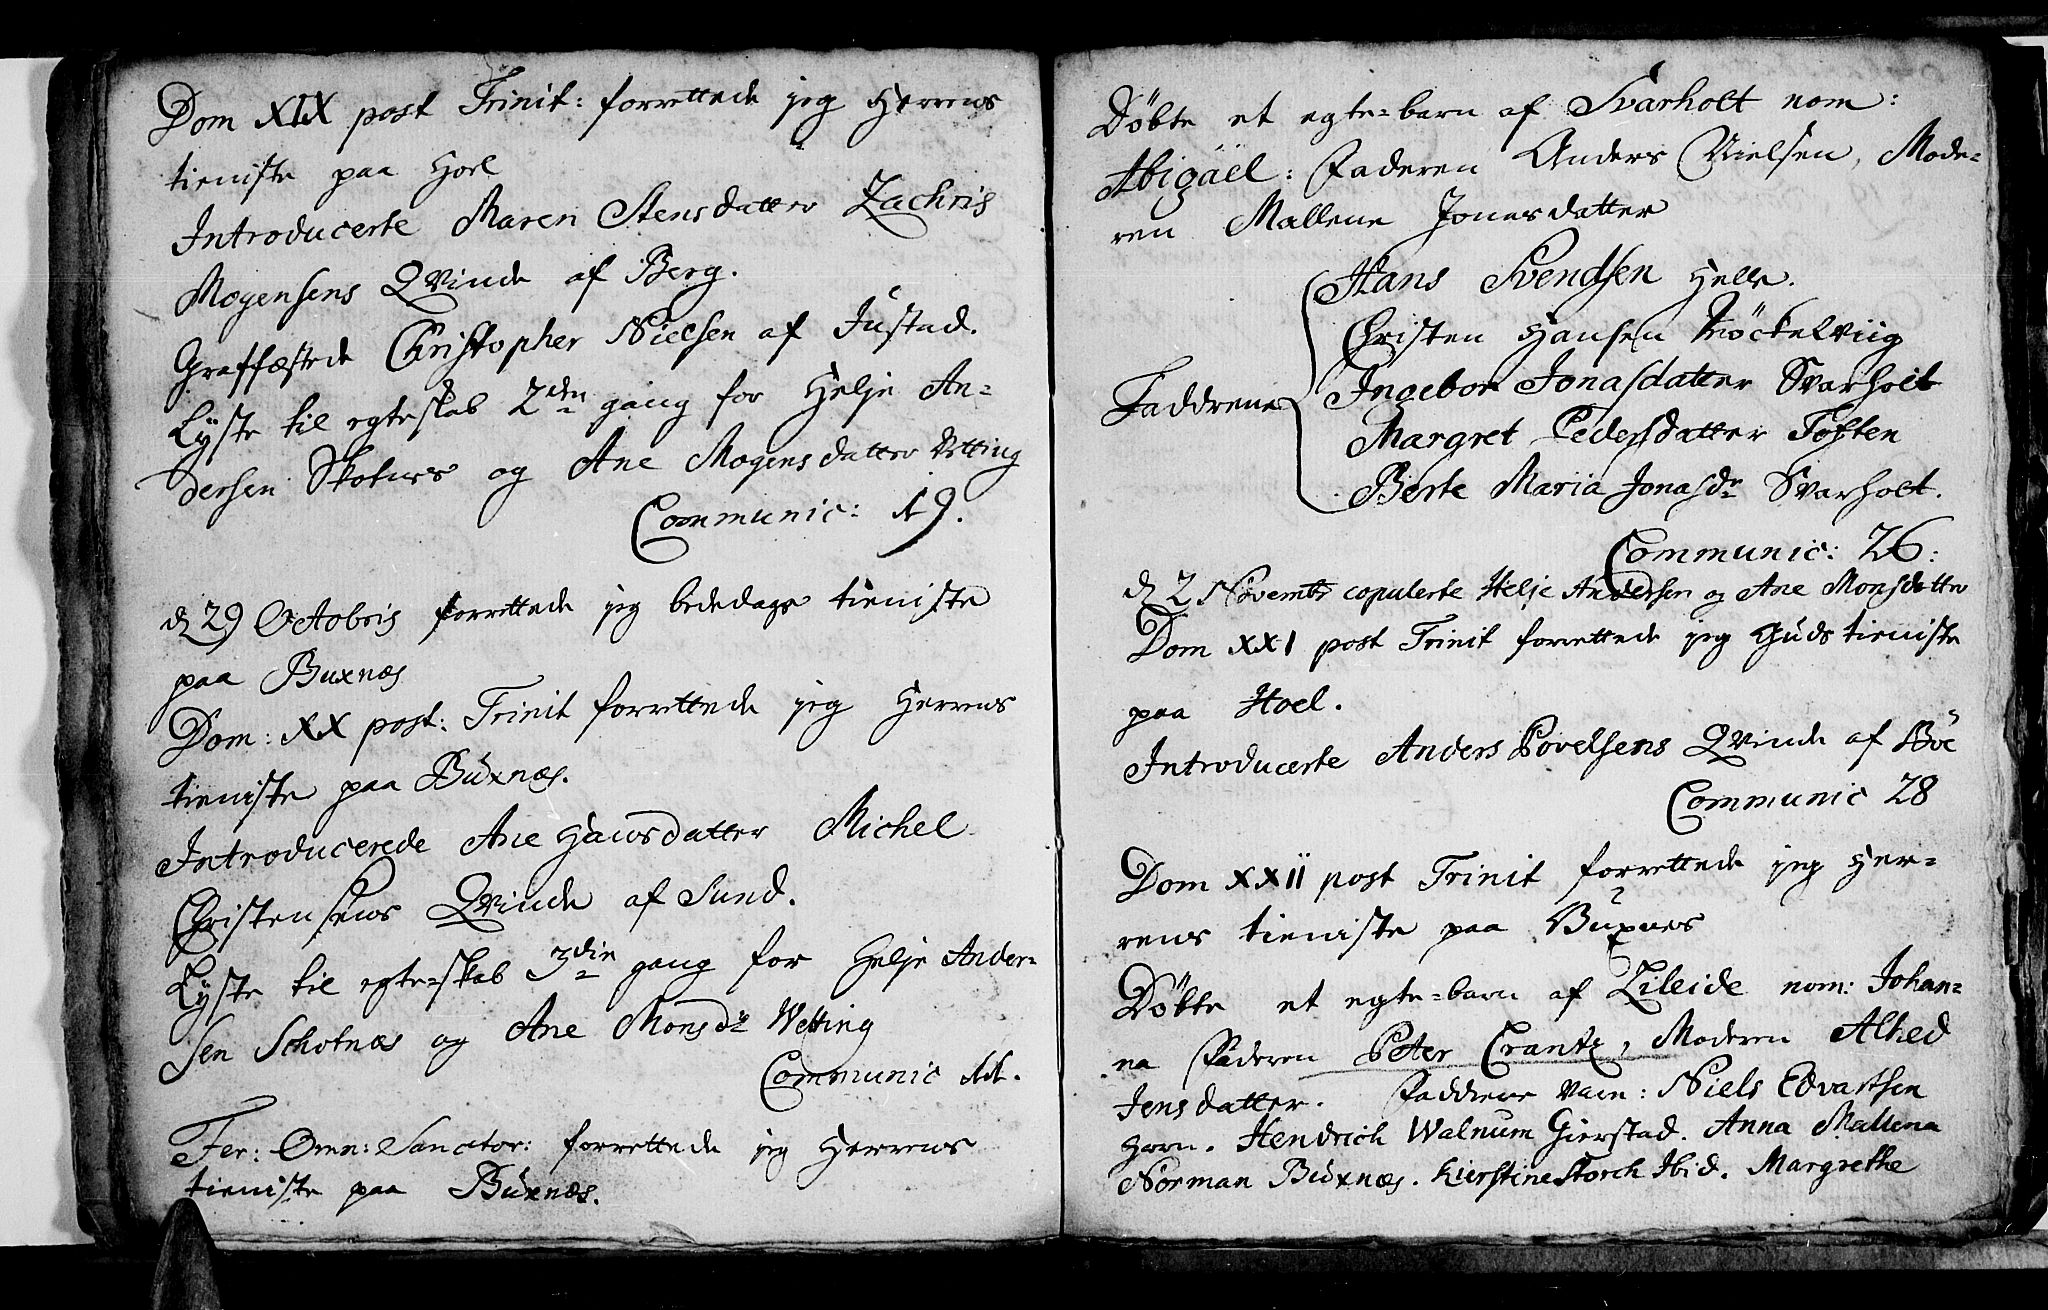 Dom XIX post Trinit: forrettede jeg Herrens
tieniste paa Hoel
Introducerte Maren Stensdatter Zachris
Mogensens Qvinde af Berg.
Graffæstede Christopher Nielsen af Justad.
Lyste til egteskab 2den gang for Helje An=
dersen Skotnes og Ane Mogensdatter Vetting
Communic: 19.
d 29 Octobris forrettede jeg bededags tieniste
paa Buxnæs
Dom: XX post: Trinit forrettede jeg Herrens
tieniste paa Buxnæs.
Introducerede Ane Hansdatter Michel
Christensens Qvinde af Sund.
Lyste til egte=skab 3die gang for Helje Ander=
sen Schotnæs og Ane Monsdr Wetting
Communic 11.
Fer: Omn: Sanctor: forrettede jeg Herrens
tieniste paa Buxnæs.
Döbte et egte=barn af Svarholt nom:
Abigäel: Faderen Anders Nielsen, Mode=
ren Mallene Jonesdatter
Hans Svendsen Helle.
Christen Hansen Möckelviig
Faddrene Ingebor Jonasdatter Svarholt
Margret Pedersdatter Toften
Berte Maria Jonasdr Svarholt.
Communic: 26:
d 2 Novembr copulerte Helje Andersen og Ane Monsdatter
Dom XXI post Trinit forrettede jeg Guds tieniste
paa Hoel.
Introducerte Anders Povelsens Qvinde af Böe
Communic 28
Dom XXII post Trinit forrettede jeg Her=
rens tieniste paa Buxnes
Döbte et egte=barn af Lileide nom: Johan=
na Faderen Peter Crantz, Moderen Alhed
Jensdatter. Faddrene vare: Niels Edvartsen
Horn. Hendrich Walnum Gierstad. Anna Mallena
Norman Buxnæs. Kierstine Storch Ibid. Margrethe